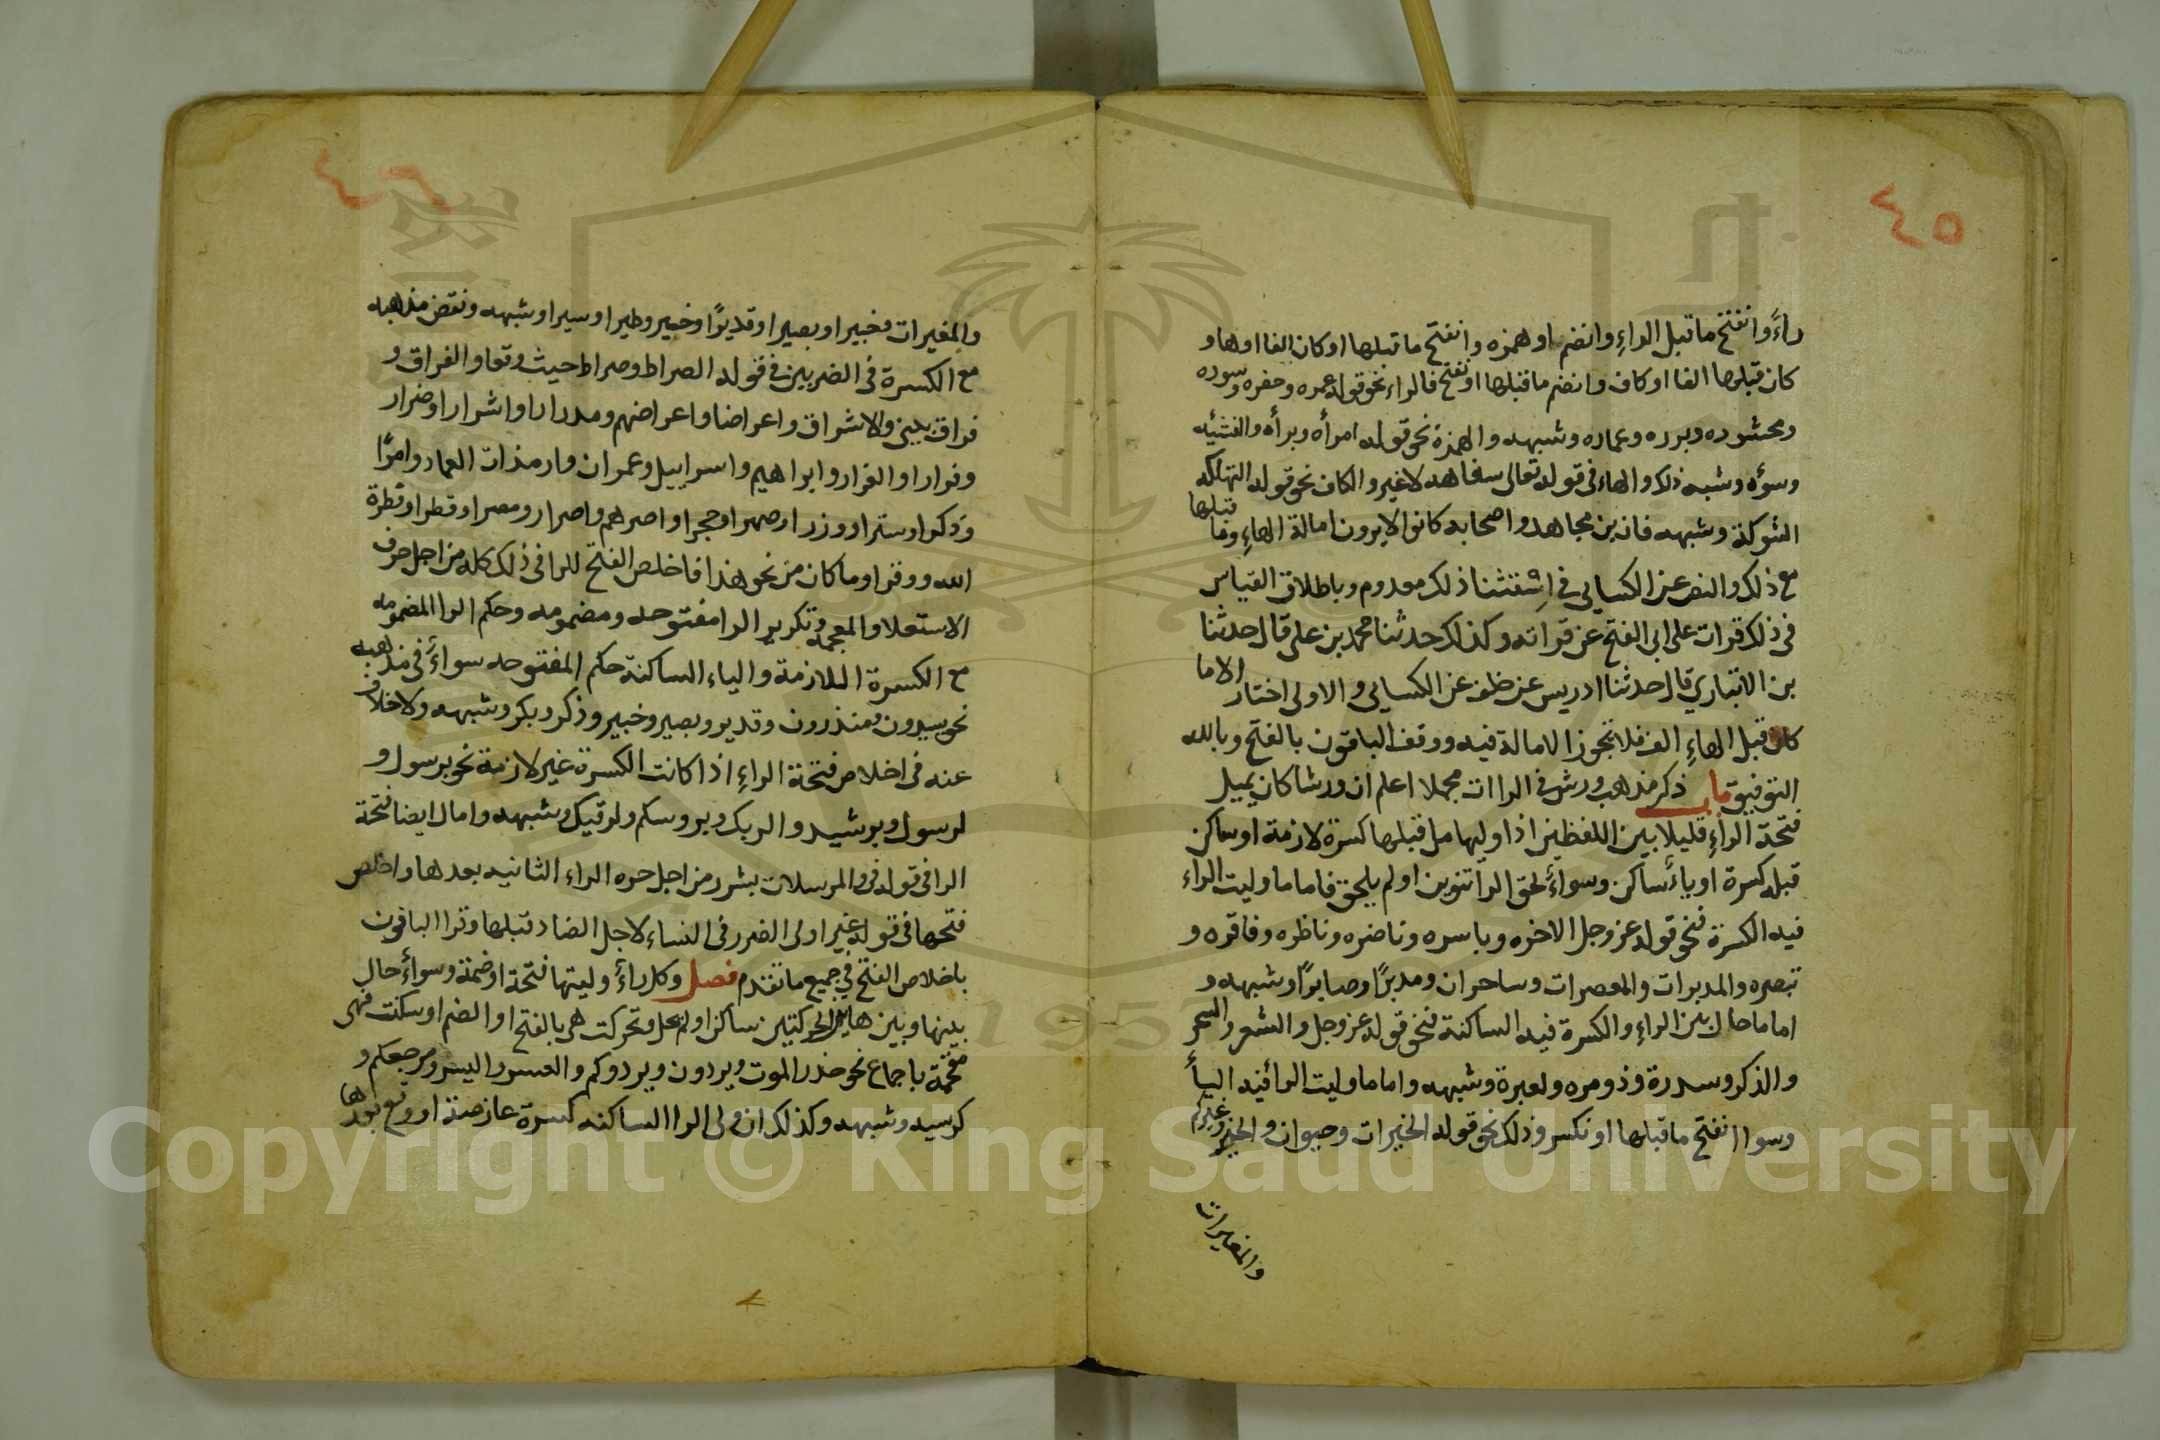 ٤٥
راءً وانفتح ما قبل الراءِ وانضم او همزه وانفتح ما قبلها او كان الفا او هاو
كان قبلها الفا او كاف وانضم ما قبلها او نفتح فالراء نحو قوله عمره وحفره وسوره
ومحشوره وبرره وعماره وشبهه والهمزة نحو قوله امرأه وبرأه والنشئه
وسؤه وشبه ذلك والهاء في قوله تعالى سفاهه لا غير والكاف نحو قوله التهلكه
الشوكة وشبهه فان بن مجاهد واصحابه كانوا لا يرون امالة الهاءِ وما قبلها
مع ذلك والنص عن الكسايى في اشتثنا ذلك معدوم وباطلاق القياس
في ذلك قرات على ابى الفتح عن قراته وكذلك حدثنا محمد بن على قال حدثنا
بن الانباري قال حدثنا ادريس عن خلف عن الكسايى والاولى اختار الا ما
كان قبل الهاءِ الف فلا تجوز الامالة فيه ووقف الباقون بالفتح وبالله
التوفيق باب ذكر مذهب ورش في الراات مجملا اعلم ان ورشا كان يميل
فتحة الراءِ قليلا بين اللفظين اذا وليها من قبلها كسرة لازمة او ساكن
قبله كسرة او ياءً ساكن وسواءً لحق الرا تنوين او لم يلحق فاما ما وليت الراء
فيه الكسرة فنحو قوله عز وجل الاخره وباسره وناضره وناظره وفاقره و
تبصره والمدبرات والمعصرات وساحران ومدبرًا وصابرًا وشبهه و
اما ما حال بين الراءِ والكسرة فيه الساكنة فنحو قوله عز وجل والشعر السحر
والذكر وسدرة وذو مره ولعبرة وشبهه واما ما وليت الرا فيه اليأ
وسوا انفتح ما قبلها او نكسر وذلك نحو قوله الخيرات وحيران والخير وغيركم
والمغيرات
والمغيرات وخبيرا وبصيرا وقديرًا وخبير وطيرا وسيرا وشبهه ونقض مذهبه
مع الكسرة في الضربين في قوله الصراط وصراط حيث وقعا والفراق و
فراق بينى والاشراق واعراضا واعراضهم ومدرارا واشرارا وضرار
وفرارا والفرار وابراهيم واسراييل وعمران وارم ذات العماد وامرًا
وذكرا وسترا ووزرا وصهرا وحجرا واصرهم واصرار ومصرا وقطرا وقطرة
الله ووقرا وما كان من نحو هذا فاخلص الفتح للرا في ذلك كله من اجل حرف
الاستعلا والعجمه وتكرير الرا مفتوحه ومضمومه وحكم الرا المضمومه
مع الكسرة اللازمة والياء الساكنة حكم المفتوحه سواءً في مذهبه
نحو يسيرون ومنذرون وقدير وبصير وخبير وذكر وبكر وشبهه ولا خلاف
عنه في اخلاص فتحة الراءِ اذا كانت الكسرة غير لازمة نحو برسول و
لرسول وبرشيد والربك وبروسكم ولرقيك وشبهه وامال ايضا فتحة
الرا في قوله في والمرسلات بشرر من اجل جره الراء الثانيه بعدها واخلص
فتحها في قوله غير اولى الضرر في النساء لاجل الضاد قبلها وقرا الباقون
باخلاص الفتح في جميع ما تقدم فصل وكل راءً وليتها فتحة او ضمة وسواءً حال
بينها وبين هاتين الحركتين ساكن او لم يحل وتحركت هي بالفتح او الضم او سكنت فهى
مفخمة باجماع نحو حذر الموت ويردون ويردوكم والعسر واليسر ومرجعكم و
كرسيه وشبهه وكذلك ان ولى الرا الساكنه كسرة عارضة او وقع بعدها